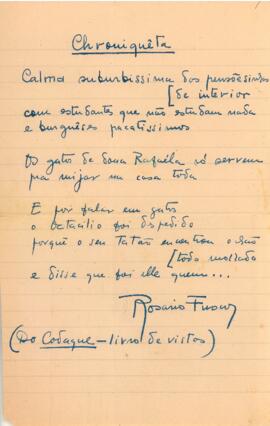 Chroniquêta
Calma suburbissima dos pensõesinhas
[de interior
com estudantes que não estudam nada
e burguêses pacatissimos
Os gatos de dona Rafaéla só servem
pra mijar na casa toda
E por falar em gatos
o Octacilio foi despedido
porquê o seu Tatão encontrou o chão
[todo molhado
e disse que foi elle quem...
Rosario Fusco
(Do Codaque — livro de vistas)